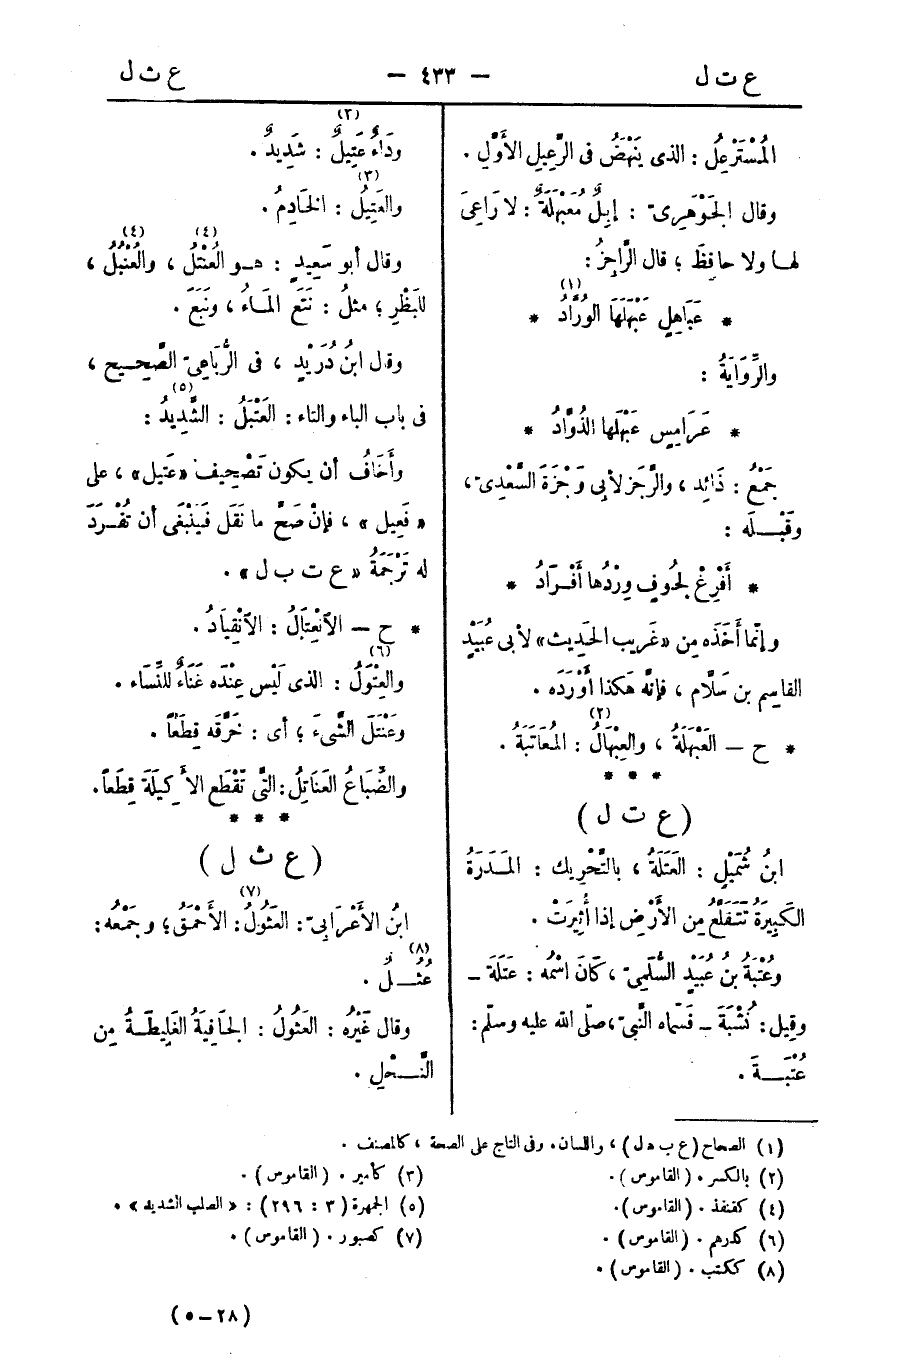 ع ت ل
— ٤٣٣ —
ع ث ل
المُسْتَرْعِلُ : الذى يَنْهَضُ فى الرَّعِيلِ الأَوَّلِ .
وقال الجَوْهَرِىّ : إبِلٌ مُعَبْهَلَةٌ : لا رَاعِىَ
لها ولا حافِظَ ؛ قال الرَّاجِزُ :
* عَبَاهِلٍ عَبْهَلَهَا الوُرَّادُ (١) *
والرِّوَايَةُ :
* عَرَامِسٍ عَبْهَلَها الذُوَّادُ *
جَمْعُ : ذَائِد ، والرَّجَز لأبى وَجْزَةَ السَّعْدِىّ ،
وقَبْـلَه :
* أَفْرِغْ لجُوفٍ وِرْدُها أَفْـرَادُ *
وإنّما أَخَذَه مِن «غَرِيب الحَدِيث» لأبى عُبَيْدٍ
القاسِم بن سَلَّام ، فإنَّه هَكذا أَوْرَدَه .
* ح – العَبْهَلَةُ ، والعِبْهَالُ (٢) : المُعَاتَبَةُ .
* * *
( ع ت ل )
ابنُ شُمَيْلٍ : العَتَلَةُ ، بالتَّحْرِيك : المَدَرَةُ
الكَبِيرَةُ تَتَقَلَّعُ مِن الأَرْضِ إذا أُثِيرَتْ .
وعُتْبَةُ بنُ عُبَيْدٍ السُّلَمِىّ ، كَانَ اسْمُه : عَتَلَة –
وقِيل : نُشْبَةَ – فسَمّاه النَّبىّ ، صلّى الله عليه وسلّم :
عُتْبَـةَ .
ودَاءٌ عَتِيلٌ (٣) : شَدِيدٌ .
والعَتِيلُ (٣) : الخَادِمُ .
وقال أبو سَعِيدٍ : هـو العُنْتُلُ (٤) ، والعُنْبُلُ (٤) ،
للبَظْرِ ؛ مثلُ : نَتَعَ المَـاءُ ، ونَبَعَ .
وقال ابنُ دُرَيْدٍ ، فى الرُّبَاعِىّ الصَّحِيـح ،
فى باب الباء والتاء : العَتْبَلُ : الشَّدِيدُ (٥) :
وأَخَافُ أن يكون تَصْحِيف «عَتِيل» ، على
« فَعِيل » ، فإنْ صَحَّ ما نَقَل فَيَنْبَغَى أن تُفْـرَدَ
له تَرْجَمَةُ «ع ت ب ل» .
* ح – الاْنْعِتَالُ : الاْنْقِيَادُ .
والعِتْوَلُ (٦) : الذى لَيْس عِنْدَه غَنَاءٌ للنِّسَاء .
وعَنْتَلَ الشَّىءَ ؛ أى : خَرَّقَه قِطَعًا .
والضِّبَاعُ العَنَاتِلُ : التَّى تَقْطَع الأَكِيلَةَ قِطَعًا .
* * *
( ع ث ل )
ابنُ الأَعْرَابِىّ : العَثُولُ (٧) : الأَحْمَقُ ؛ وجَمْعُه :
عُثُـلٌ (٨) .
وقال غَيْرُه : العَثُولُ : الجَافِيَةُ الغَلِيظَـةُ مِن
النَّـخْلِ .
(١) الصحاح (ع ب ه ل) ، واللسان . وفى التاج على الصحة ، كالمصنف .
(٢) بالكسر . (القاموس) .
(٣) كأمير . (القاموس) .
(٤) كقنفذ . (القاموس) .
(٥) الجمهرة (٣ : ٢٩٦) : «الصلب الشديد» .
(٦) كدرهم . (القاموس) .
(٧) كصبور . (القاموس) .
(٨) ككتب . (القاموس) .
(٢٨ – ٥)